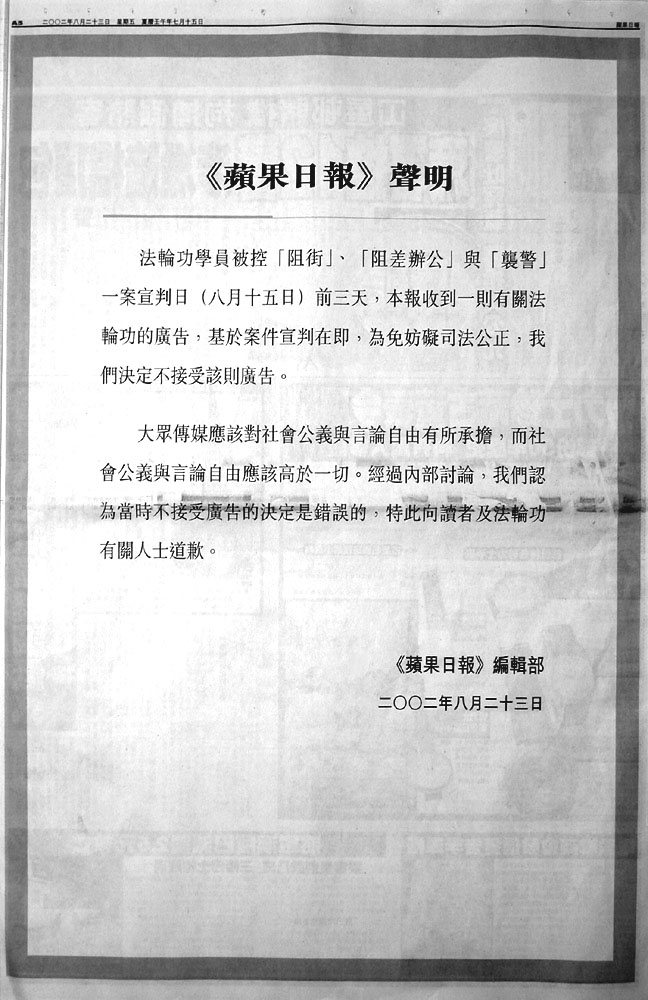 A5 二〇〇二年八月二十三日 星期五 夏曆壬午年七月十五日 蘋果日報
《蘋果日報》聲明
法輪功學員被控「阻街」、「阻差辦公」與「襲警」
一案宣判日（八月十五日）前三天，本報收到一則有關法
輪功的廣告，基於案件宣判在即，為免妨礙司法公正，我
們決定不接受該則廣告。
大眾傳媒應該對社會公義與言論自由有所承擔，而社
會公義與言論自由應該高於一切。經過內部討論，我們認
為當時不接受廣告的決定是錯誤的，特此向讀者及法輪功
有關人士道歉。
《蘋果日報》編輯部
二〇〇二年八月二十三日